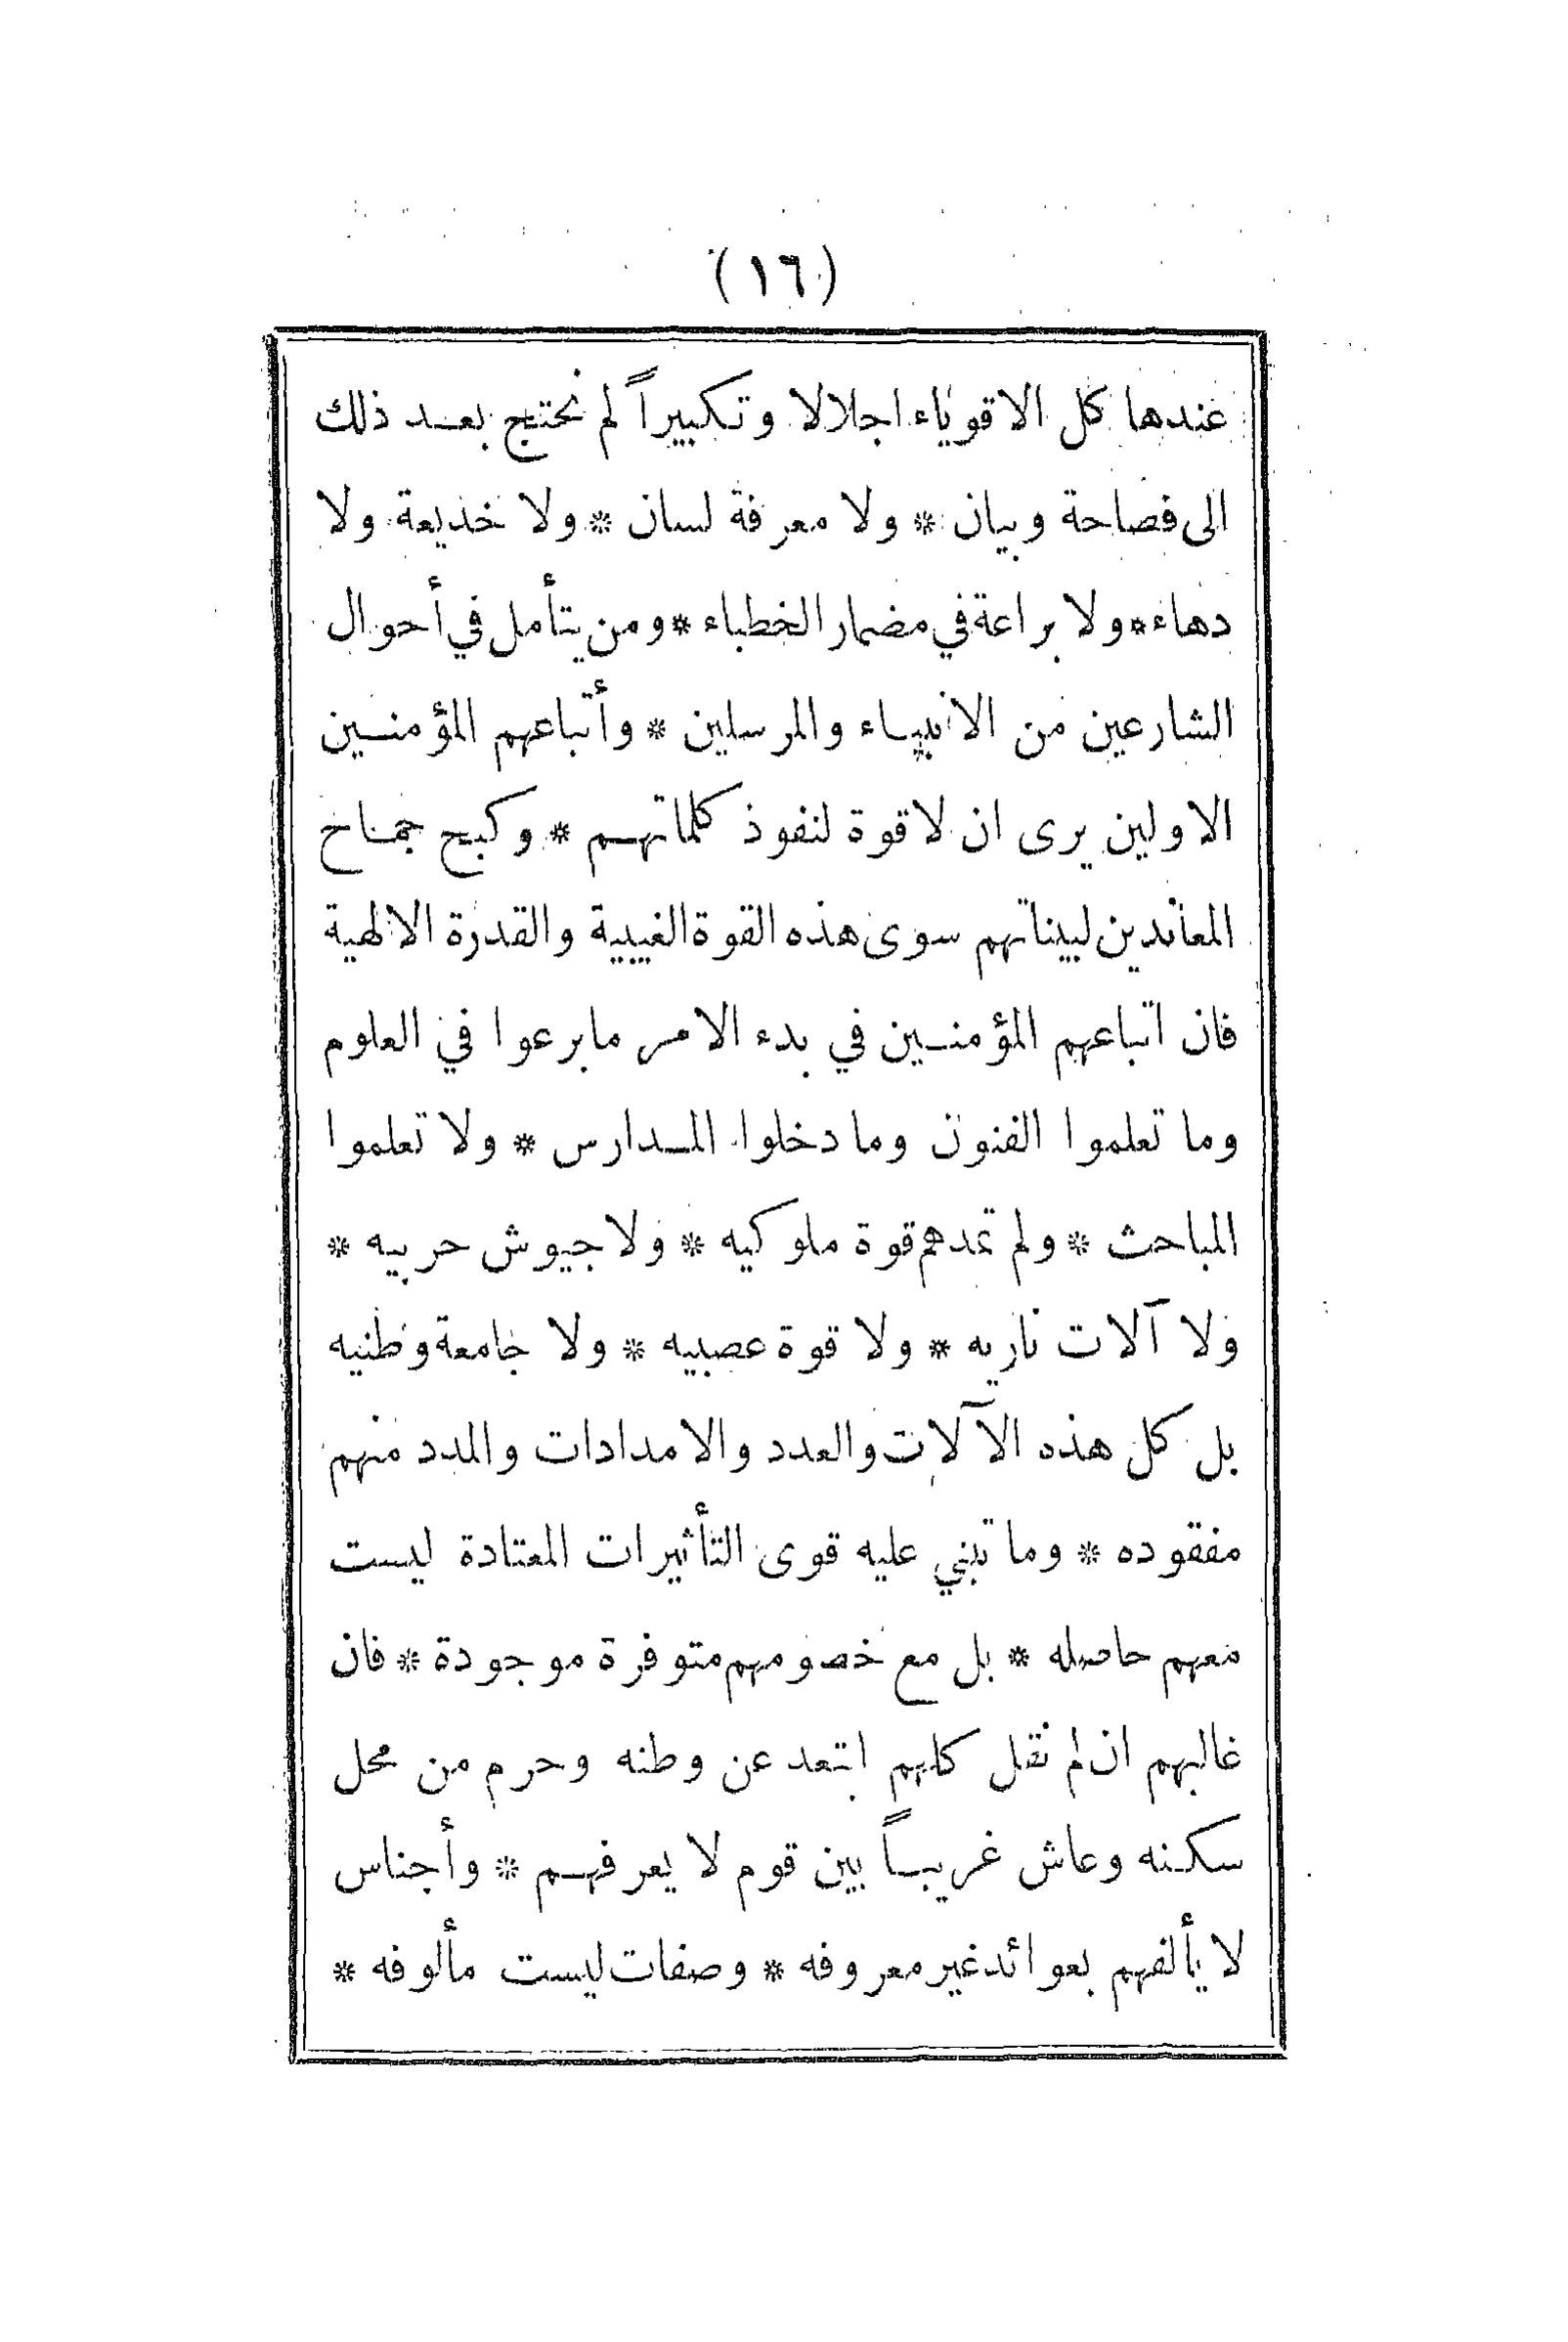 (١٦)
عندها كل الاقوياء اجلالا وتكبيراً لم نحتج بعد ذلك
الى فصاحة وبيان * ولا معرفة لسان * ولا خديعة ولا
دهاء * ولا براعة في مضمار الخطباء * ومن يتأمل في أحوال
الشارعين من الانبياء والمرسلين * وأتباعهم المؤمنين
الاولين يرى ان لا قوة لنفوذ كلماتهم * وكبح جماح
المعاندين لبيناتهم سوى هذه القوة الغيبية والقدرة الالهية
فان اتباعهم المؤمنين في بدء الامر ما برعوا في العلوم
وما تعلموا الفنون وما دخلوا المدارس * ولا تعلموا
المباحث * ولم تمدهم قوة ملوكيه * ولا جيوش حربيه *
ولا آلات ناريه * ولا قوة عصبيه * ولا جامعة وطنيه
بل كل هذه الآلات والعدد والامدادات والمدد منهم
مفقوده * وما تبني عليه قوى التأثيرات المعتادة ليست
معهم حاصله * بل مع خصومهم متوفرة موجودة * فان
غالبهم ان لم نقل كلهم ابتعد عن وطنه وحرم من محل
سكنه وعاش غريباً بين قوم لا يعرفهم * وأجناس
لا يألفهم بعوائد غير معروفه * وصفات ليست مألوفه *